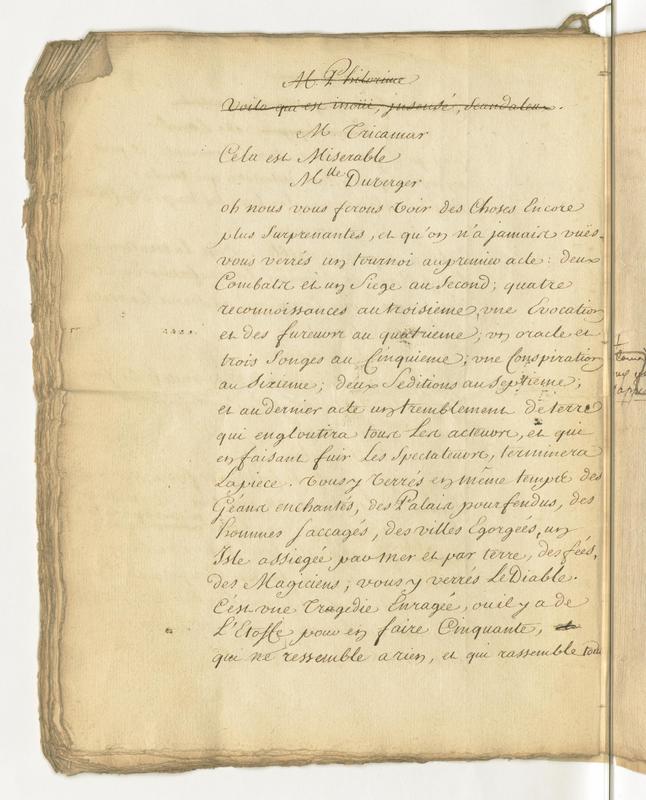 M. Philorime
Voila qui est inoüi, insensé, scandaleux.
M Tricamar
Cela est Miserable
Mlle Duverger
oh nous vous ferons voir des choses Encore
plus surprenantes, et qu'on n'a jamais vuës.
vous verrés un tournoi au premier acte : deux
Combats et un Siege au Second ; quatre
reconnoissances au troisieme, une Evocation
et des fureurs au quatrieme ; un oracle et
trois Songes au Cinquieme ; une Conspiration
au Sixieme ; deux Seditions au Septieme ;
et au dernier acte un tremblement de terre
qui engloutira tous Les acteurs, et qui
en faisant fuir les Spectateurs, terminera
La piece. Vous y verrés en même temps des
Géans enchantés, des Palais pourfendus, des
hommes saccagés, des villes Egorgées, un
Isle assiegée par Mer et par terre, des fées,
des Magiciens ; vous y verrés Le Diable.
C'est une Tragedie Enragée, ou il y a de
L'Etoffe pour en faire Cinquante,
qui ne ressemble a rien, et qui rassemble tout